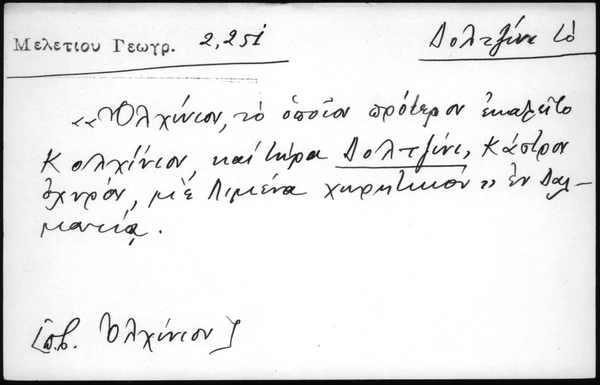 Μελετίου Γεωγρ. 2,251
Δολτζίνι τό
«Ὀλχίνιον, τὸ ὁποῖον πρότερον ἐκαλεῖτο
Κολχίνιον καί τώρα Δολτζίνι, Κάστρον
ὀχυρόν, μὲ λιμένα χωρητικόν» ἐν Δαλ-
ματίᾳ.
[πβ. Ὀλχίνιον]